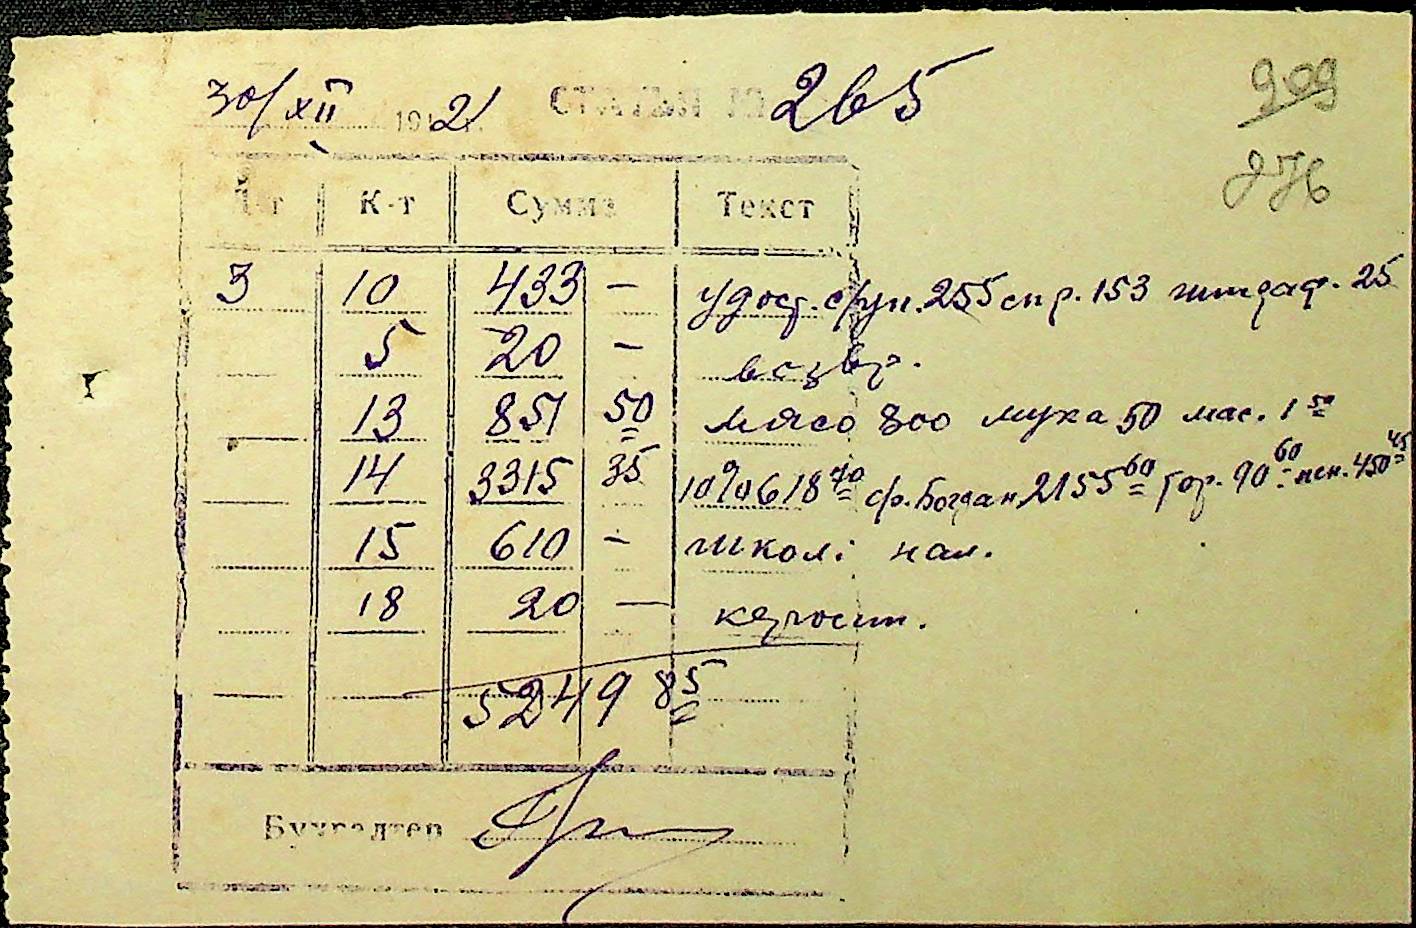 30/XII 1942 СТАТЬЯ № 265
909
276
Д-т К-т Сумма Текст
3 10 433 — удост. 255 спр. 153 штраф. 25
5 20 — возвр.
13 851 50 мясо 800 мука 50 мас. 1 50
14 3315 35 10% 618 70 ср. Богдан. 2155 60 Гор. 90 60 пен. 450 45
15 610 — школі нал.
18 20 — керосин.
5249 85
Бухгалтер